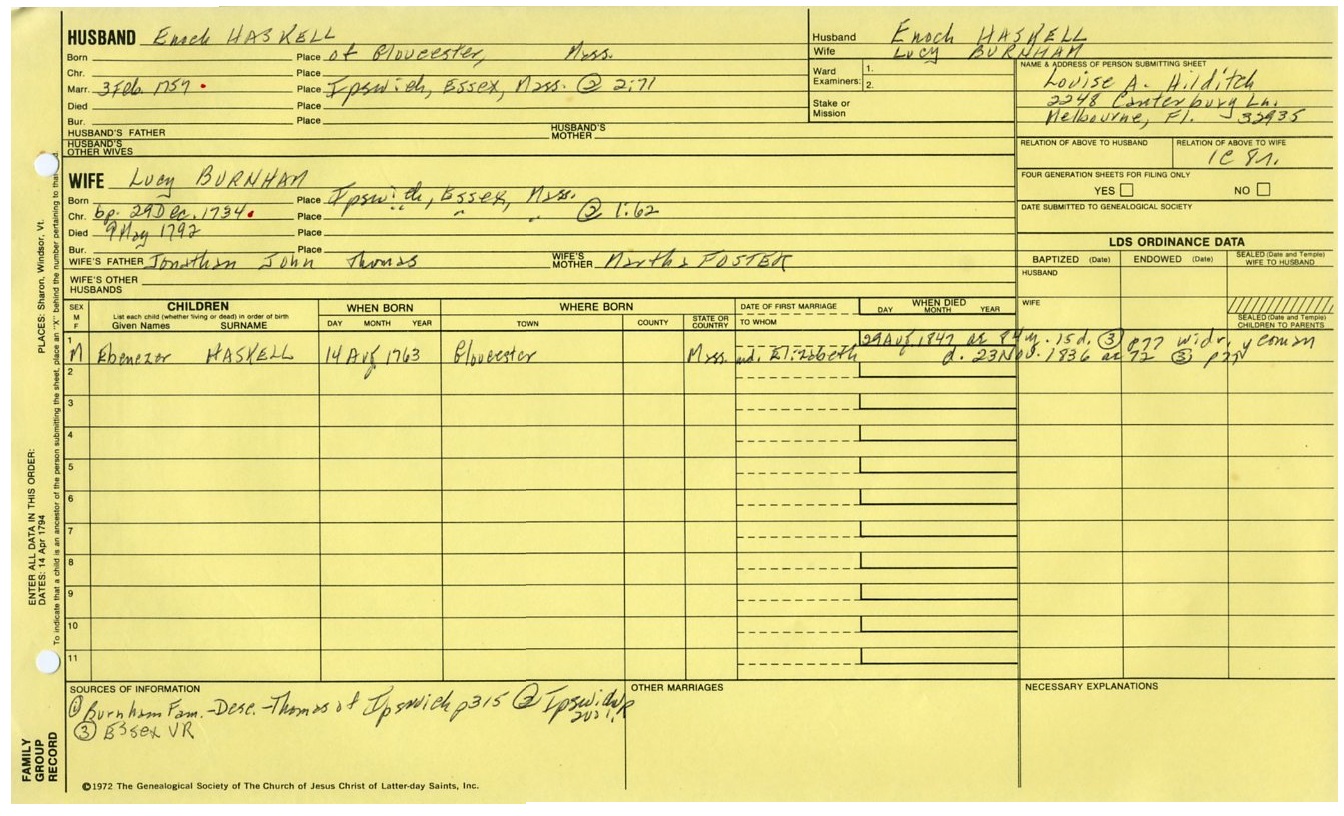 HUSBAND Enoch HASKELL
Born Place of Gloucester, Mass.
Chr. Place
Marr. 3 Feb. 1757 Place Ipswich, Essex, Mass. ② 2:71
Died Place
Bur. Place
HUSBAND'S FATHER HUSBAND'S MOTHER
HUSBAND'S OTHER WIVES
Husband Enoch HASKELL
Wife Lucy BURNHAM
Ward Examiners: 1.
2.
Stake or Mission
NAME & ADDRESS OF PERSON SUBMITTING SHEET
Louise A. Hilditch
2248 Canterbury Ln.
Melbourne, Fl. 32935
RELATION OF ABOVE TO HUSBAND RELATION OF ABOVE TO WIFE
1C 8r.
FOUR GENERATION SHEETS FOR FILING ONLY
YES NO
DATE SUBMITTED TO GENEALOGICAL SOCIETY
LDS ORDINANCE DATA
BAPTIZED (Date) ENDOWED (Date) SEALED (Date and Temple) WIFE TO HUSBAND
HUSBAND
WIFE
SEALED (Date and Temple) CHILDREN TO PARENTS
WIFE Lucy BURNHAM
Born Place Ipswich, Essex, Mass.
Chr. bp. 29 Dec. 1734 Place " " " ② 1:62
Died 9 May 1792 Place
Bur. Place
WIFE'S FATHER Jonathan John Thomas WIFE'S MOTHER Martha FOSTER
WIFE'S OTHER HUSBANDS
SEX M F
CHILDREN
List each child (whether living or dead) in order of birth
Given Names SURNAME
WHEN BORN
DAY MONTH YEAR
WHERE BORN
TOWN COUNTY STATE OR COUNTRY
DATE OF FIRST MARRIAGE
TO WHOM
WHEN DIED
DAY MONTH YEAR
1 M Ebenezer HASKELL 14 Aug 1763 Gloucester Mass. md. Elizabeth
29 Aug 1847 ae 84 y. 15d. ③ p77 widr, yeoman
d. 23 Nov. 1836 ae 72 ③ p77
2
3
4
5
6
7
8
9
10
11
SOURCES OF INFORMATION
① Burnham Fam. - Desc. - Thomas of Ipswich p315 ② Ipswich
③ Essex VR
OTHER MARRIAGES
NECESSARY EXPLANATIONS
©1972 The Genealogical Society of The Church of Jesus Christ of Latter-day Saints, Inc.
FAMILY GROUP RECORD
ENTER ALL DATA IN THIS ORDER:
DATES: 14 Apr 1794 PLACES: Sharon, Windsor, Vt.
To indicate that a child is an ancestor of the person submitting the sheet, place an "X" behind the number pertaining to that